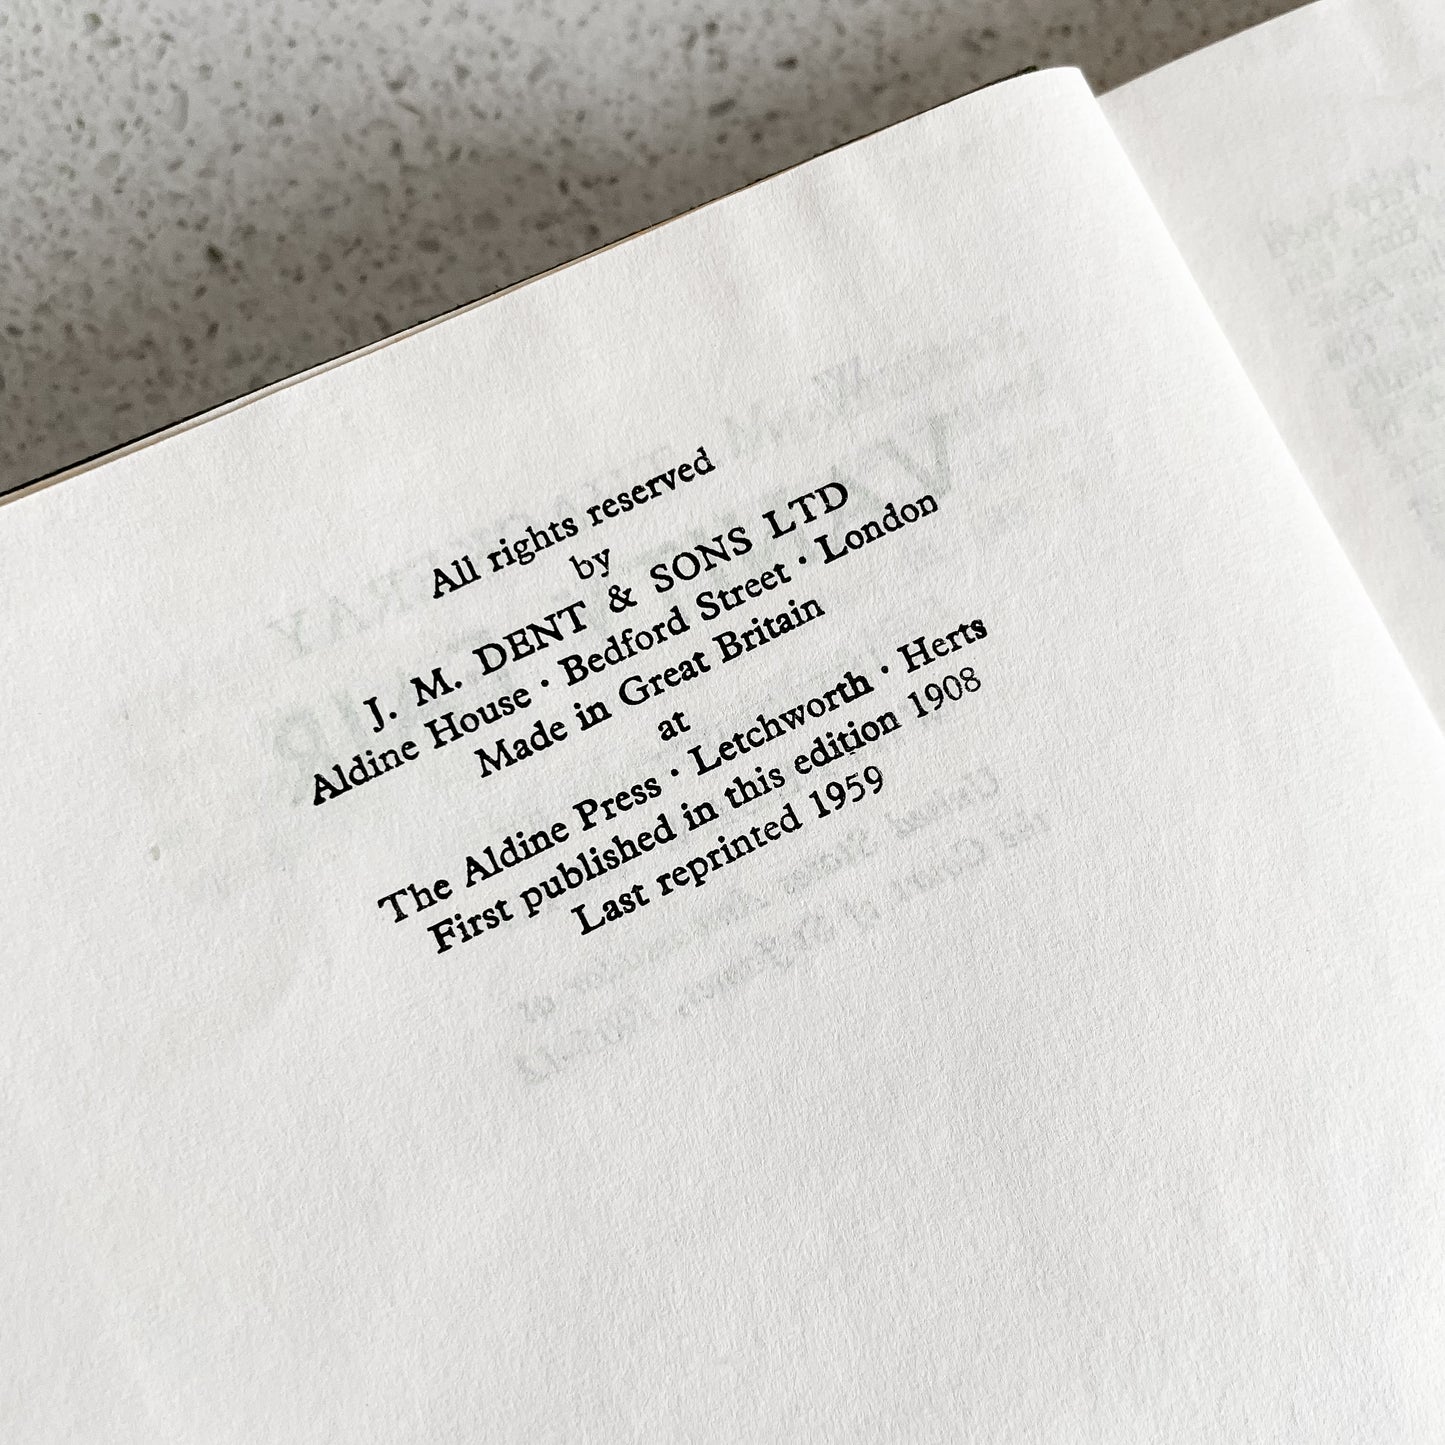 All rights reserved
by
J. M. DENT & SONS LTD
Aldine House · Bedford Street · London
Made in Great Britain
at
The Aldine Press · Letchworth · Herts
First published in this edition 1908
Last reprinted 1959